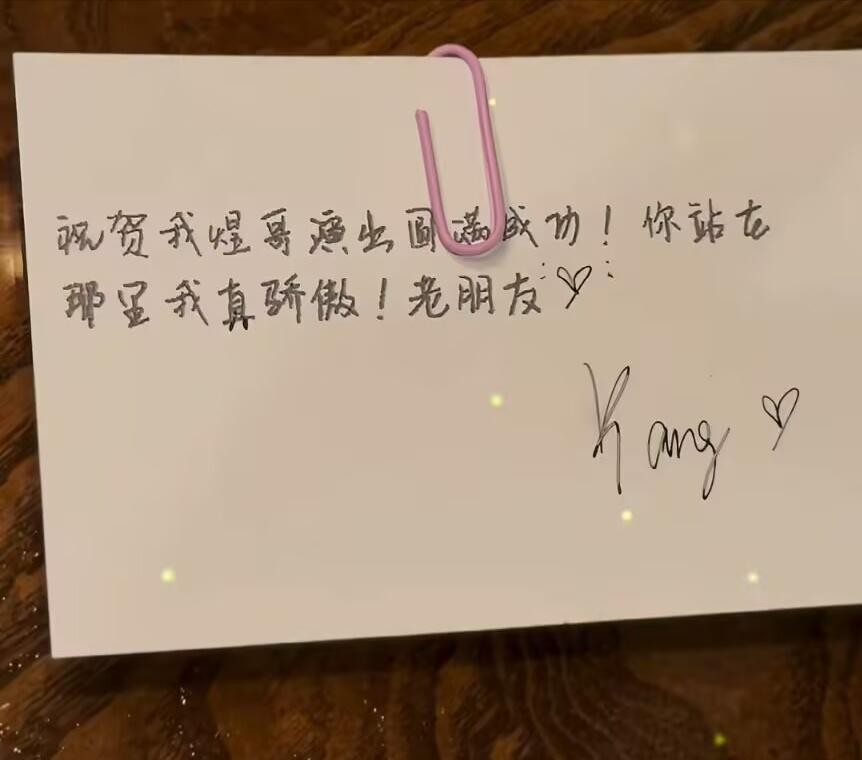 祝贺我煜哥演出圆满成功！你站在
那里我真骄傲！老朋友♡
Kang ♡